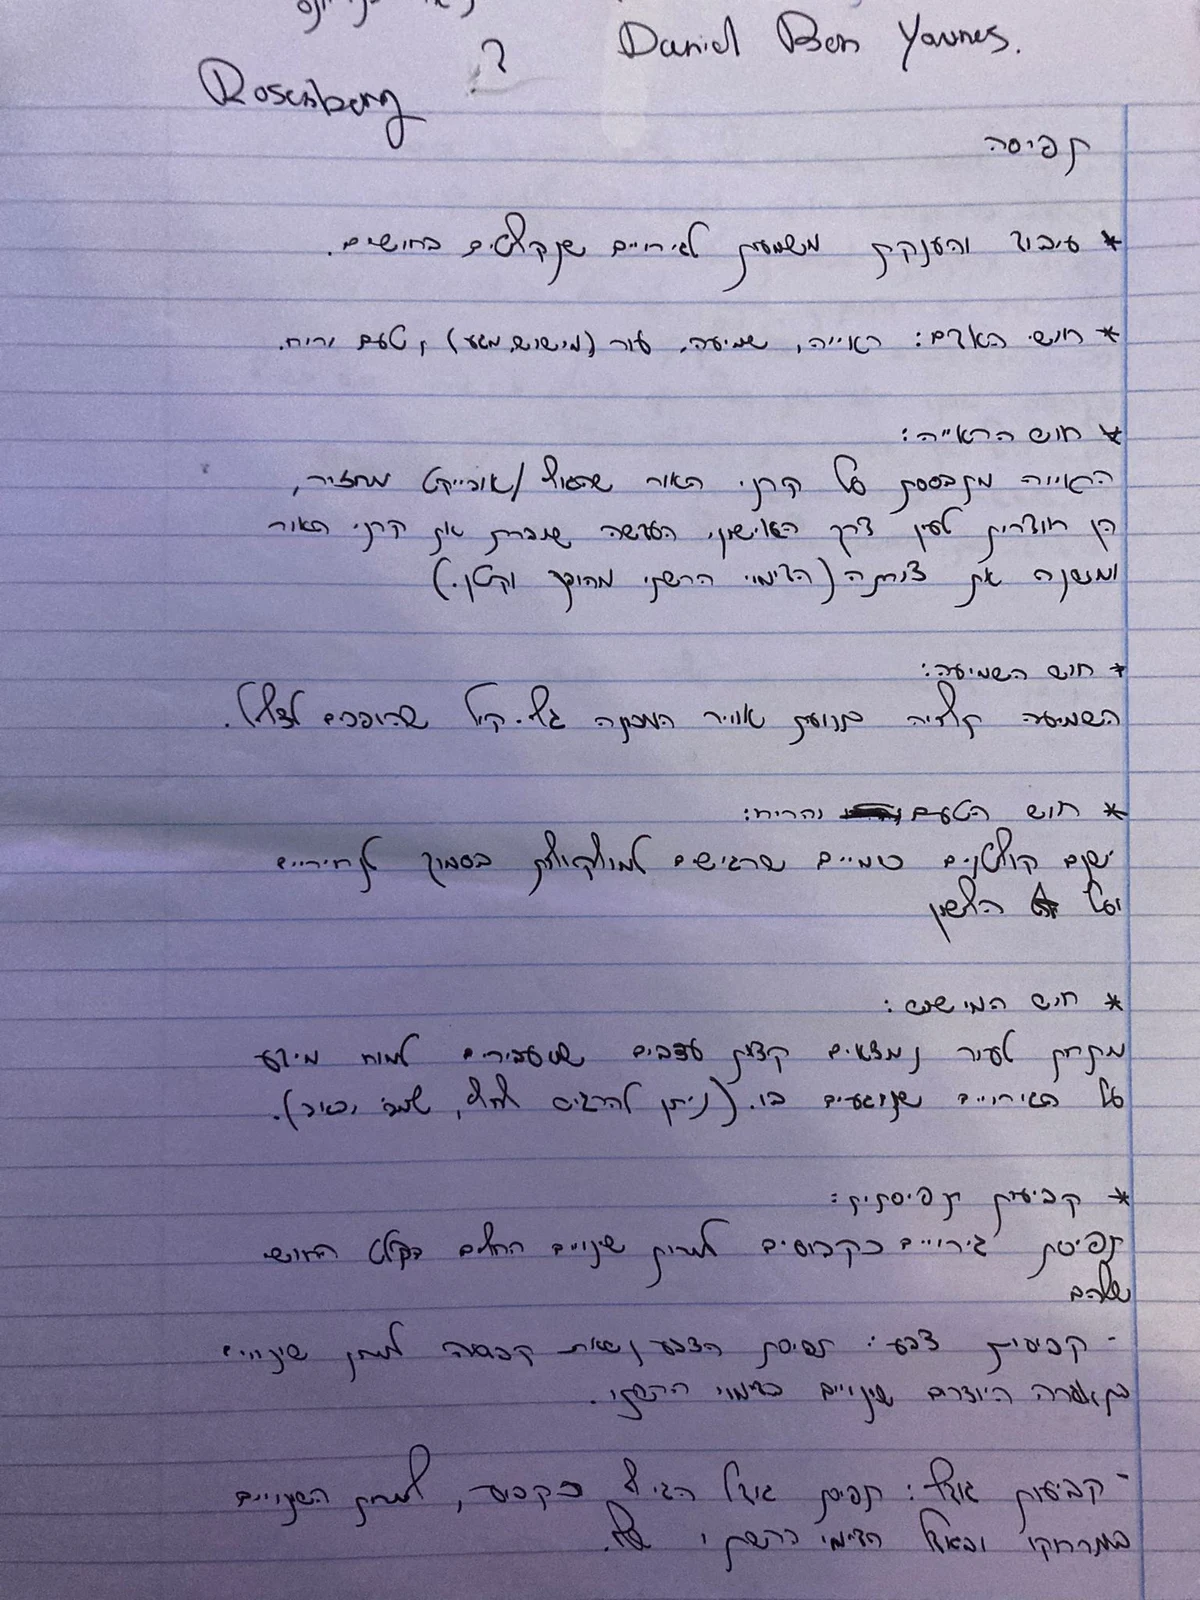 Daniel Ben Younes.
?
Rosenberg
תפיסה
* עיבוד והענקת משמעות לגירויים שנקלטים בחושים.
* חושי האדם: ראייה, שמיעה, עור (מישוש, מגע), טעם וריח.
* חוש הראייה:
הראייה מתבססת על קרני האור שהגוף/אובייקט מחזיר,
הן חודרות לעין דרך האישון, העדשה שוברת את קרני האור
ומשנה את צורתה (הדימוי הרשתי מהופך וקטן.)
* חוש השמיעה:
השמיעה תלויה בתנועת אוויר המכה גלי קול שהופכים לצליל.
* חוש הטעם והריח:
ישנם קולטנים כימיים שרגישים למולקולות בסמוך לנחיריים
ועל הלשון
* חוש המישוש:
מתחת לעור נמצאים קצות עצבים שמעבירים למוח מידע
על הגירויים שנוגעים בו. (ניתן להרגיש לחץ, וכאב).
* קביעות תפיסתית:
תפיסת גירויים כקבועים למרות שינויים החלים בקלט החושי
שלהם
- קביעות צבע: תפיסת הצבע נשארת קבועה למרות שינויים
בתאורה היוצרים שינויים בדימוי הרשתי.
- קביעות גודל: תפיסת גודל הגוף כקבוע, למרות השינויים
במרחקו ובגודל הדימוי הרשתי שלו.